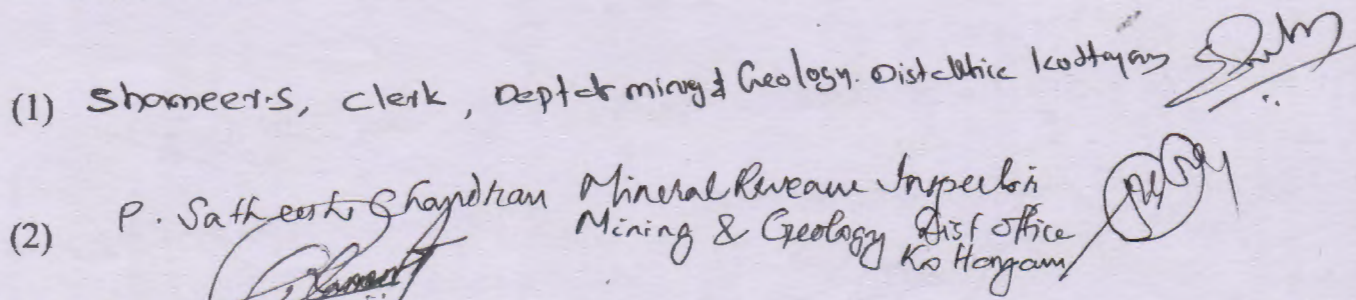 (1) Shameer.S, Clerk, Dept of mining & Geology. Dist office Kottayam
(2) P. Satheesh Chandran Mineral Revenue Inspector
Mining & Geology Dist office
Kottayam